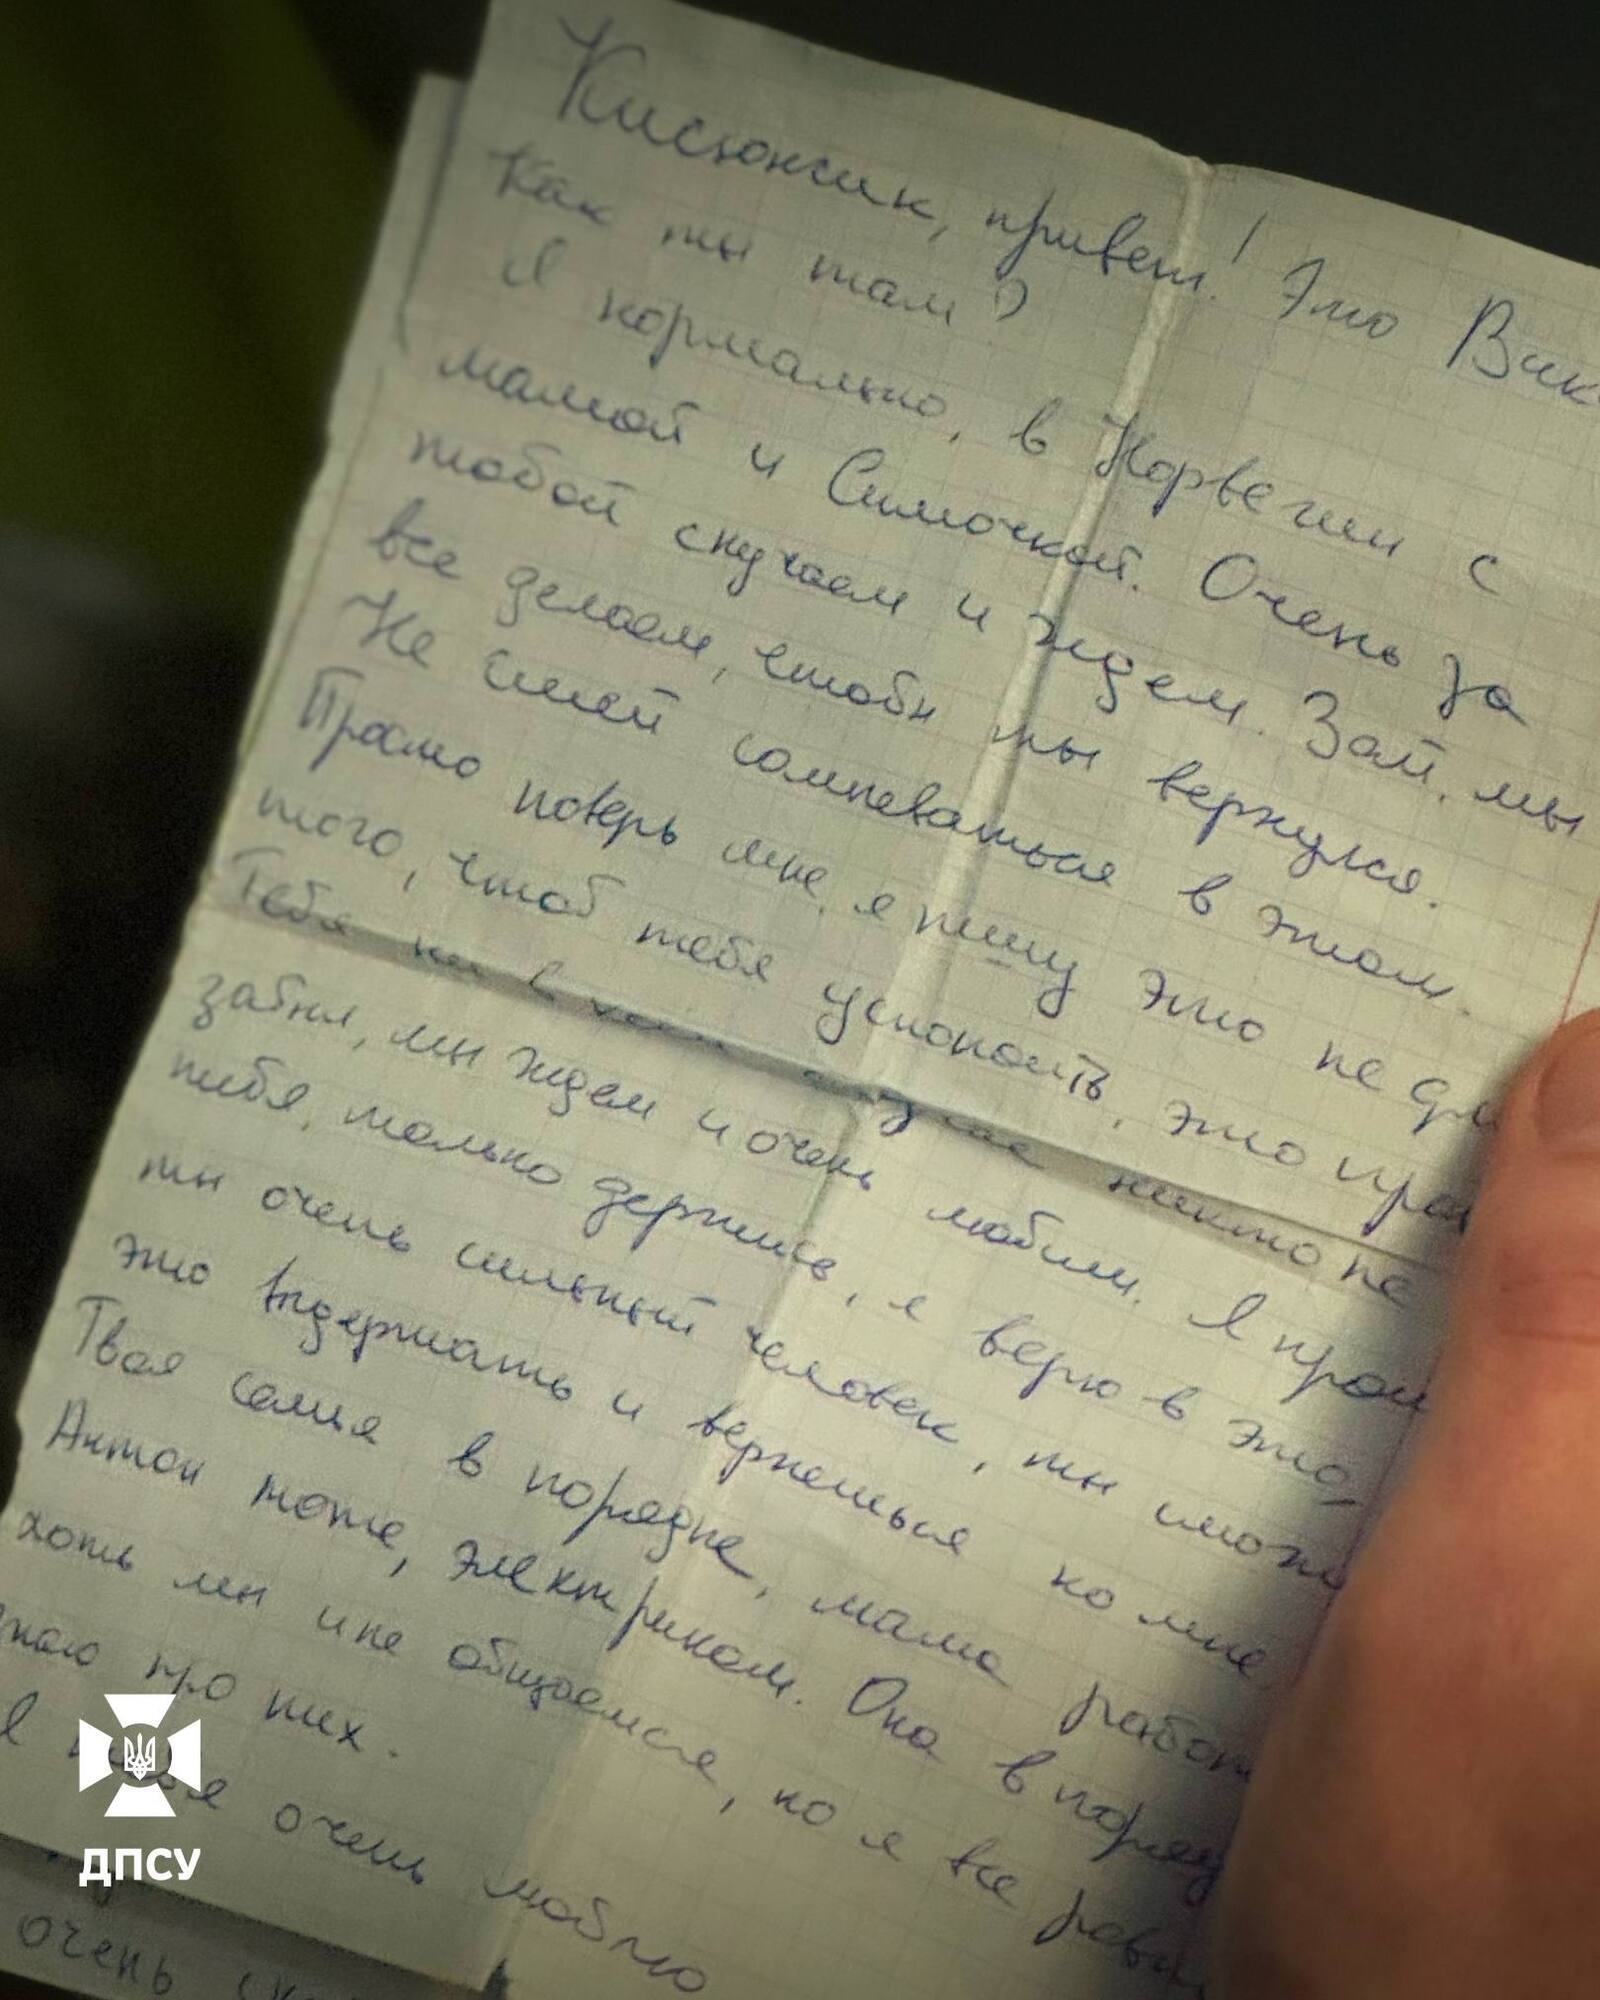 Кисюнчик, привет! Это Вик
Как ты там?
Я нормально, в Норвегии с
мамой и Симочкой. Очень за
тобой скучаем и ждем. Зай, мы
все делаем, чтобы ты вернулся.
Не смей сомневаться в этом.
Просто поверь мне, я пишу это не дл
того, чтоб тебя успокоить, это прав
Тебя ни в коем случае никто не
забыл, мы ждем и очень любим. Я прош
тебя, только держись, я верю в это,
ты очень сильный человек, ты смож
это выдержать и вернешься ко мне,
Твоя семья в порядке, мама работ
Антон тоже, электриком. Она в поряд
хоть мы и не общаемся, но я все равн
знаю про них.
Я тебя очень люблю
очень
ДПСУ